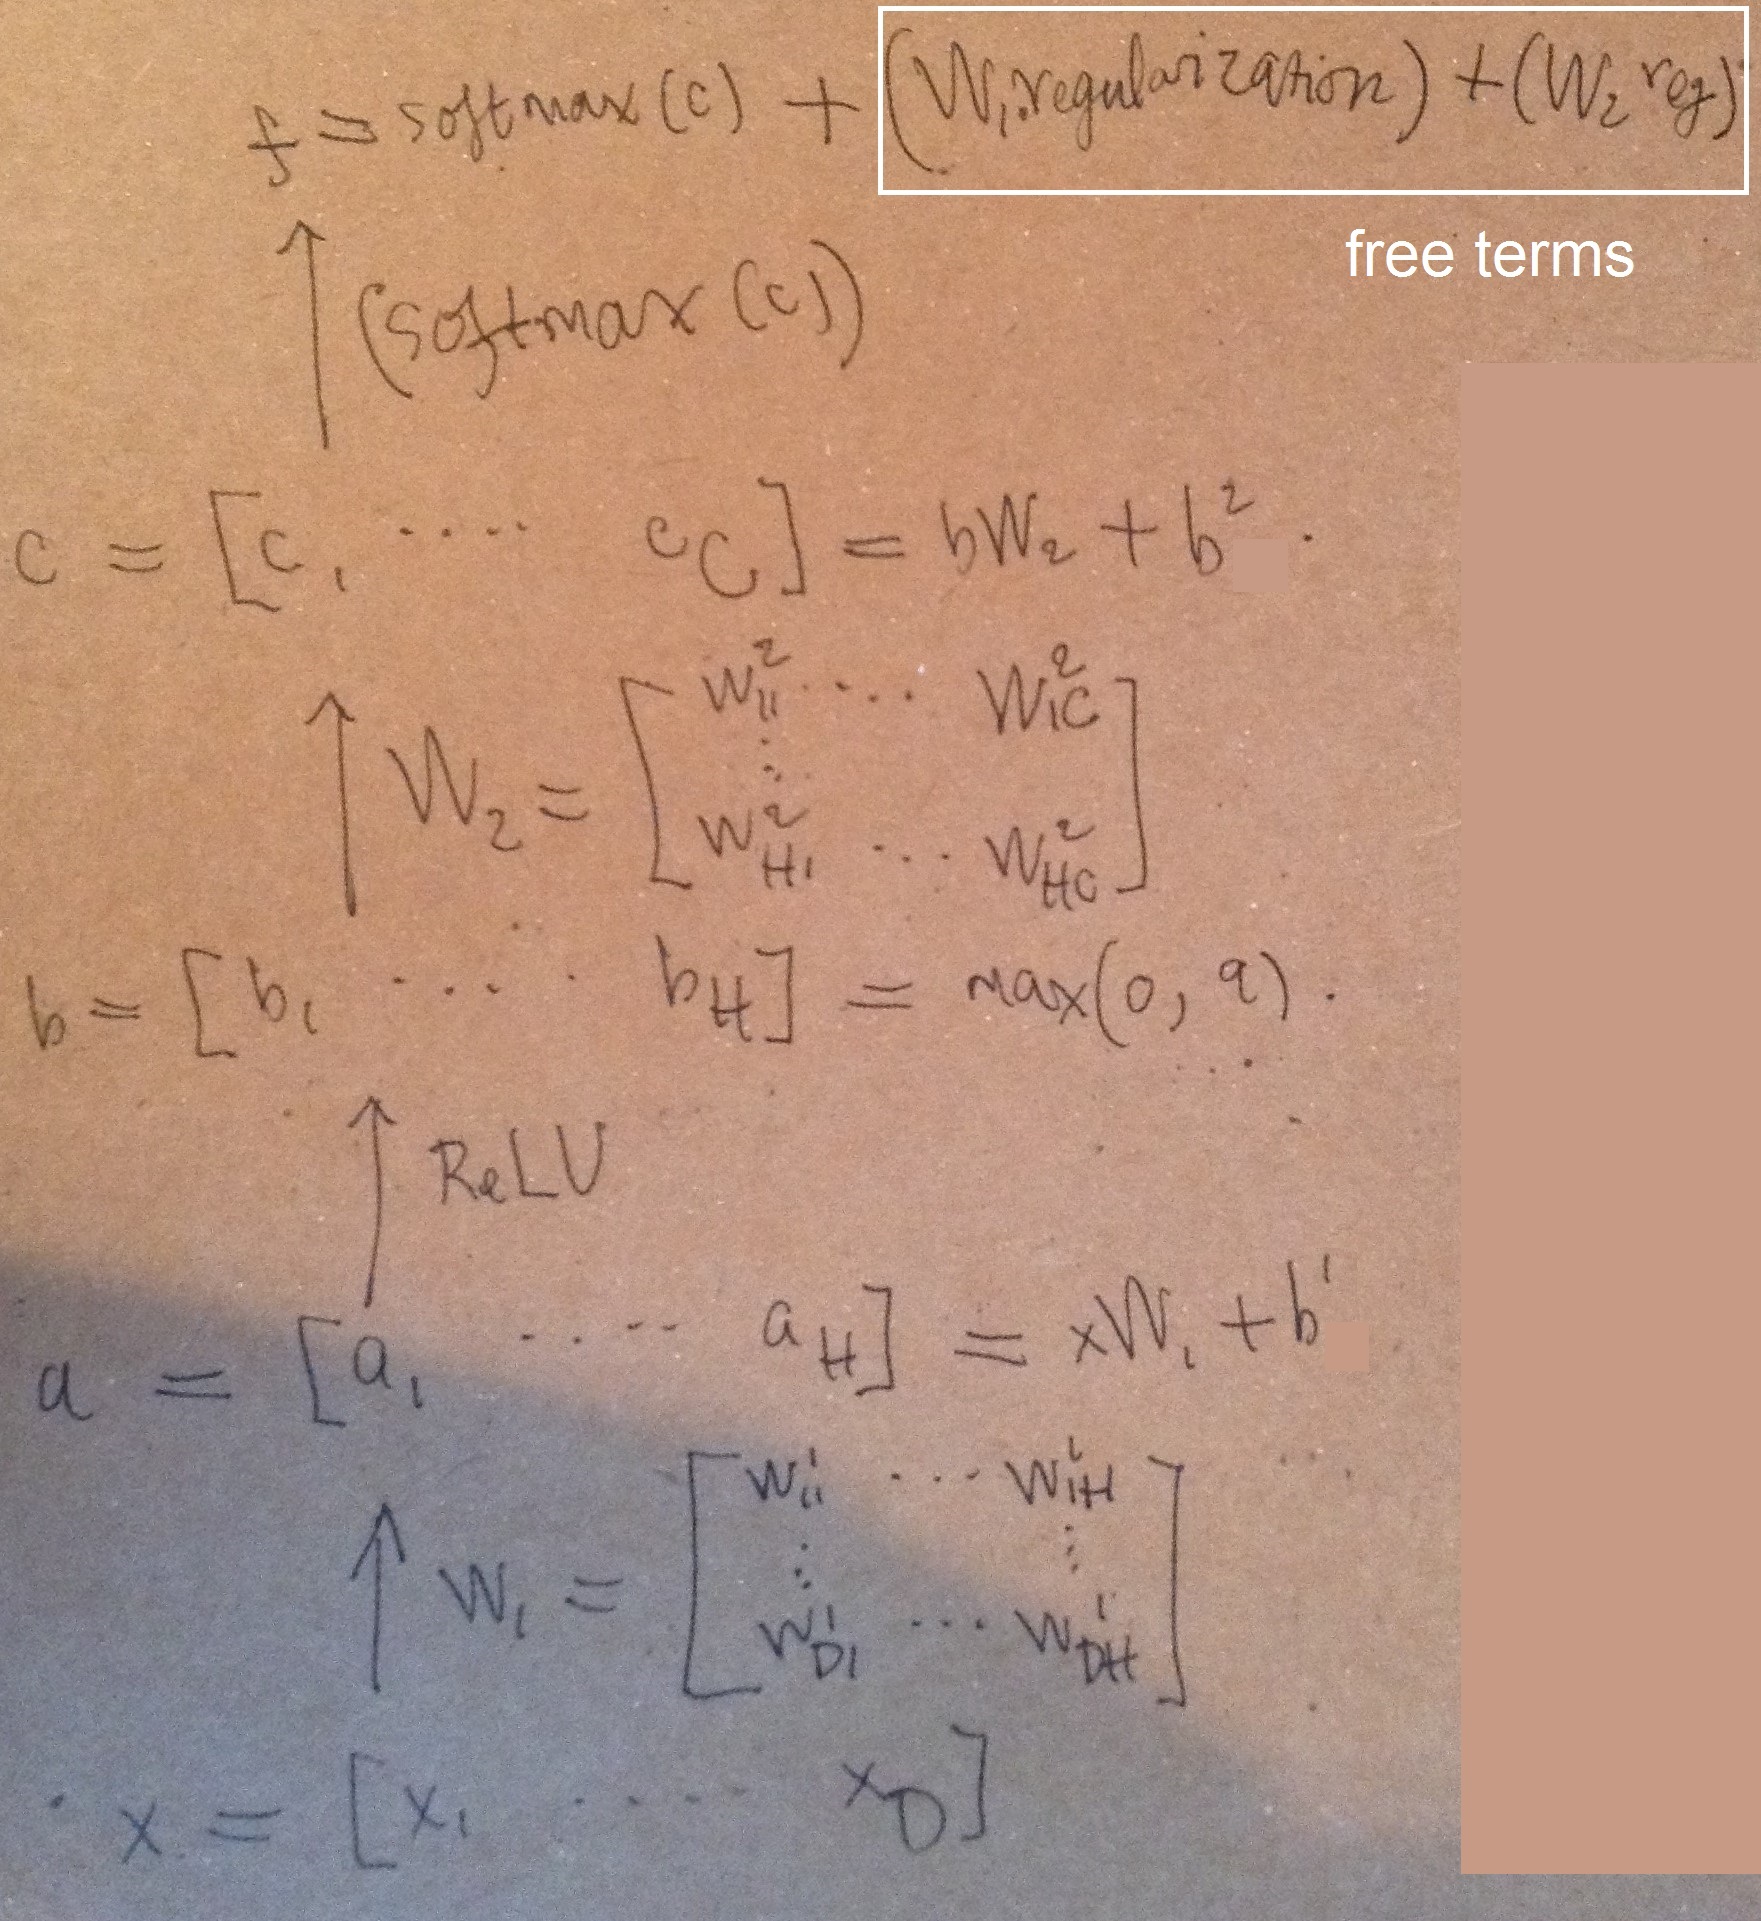 f = softmax(c) + (W₁ regularization) + (W₂ reg)
free terms
(softmax(c))
c = [c₁ ···· c_C] = bW₂ + b² .
W₂ = [w²₁₁ ···· w²₁C
⋮
w²H₁ ··· w²HC]
b = [b₁ ···· b_H] = max(0, a) .
ReLU
a = [a₁ ···· a_H] = xW₁ + b¹
W₁ = [w¹₁₁ ··· w¹₁H
⋮ ⋮
w¹D₁ ··· w¹DH]
x = [x₁ ···· x_D]